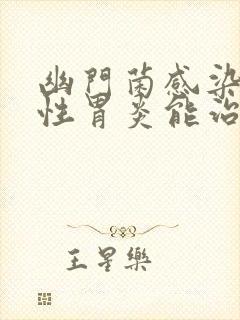 幽門菌感染
性胃炎能治
王星樂